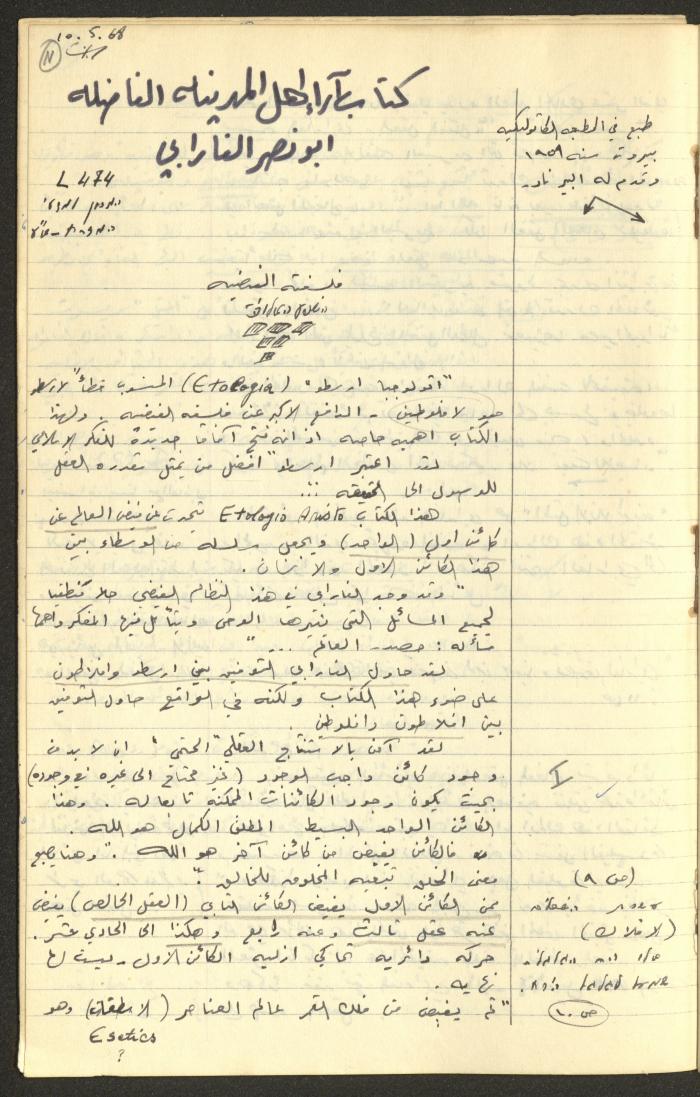 10.5.68
11
كتاب آراء اهل المدينه الفاضله
ابو نصر الفارابي
طبع في المطبعه الكاثوليكيه
بيروت سنه ١٩٥٩
وقدم له البير نادر
L 474
فلسفته الفيضيه
"اتولوجيا ارسطو" (Etologia) المنسوب خطأ" لارسطو
هو لافلوطين - الدافع الاكبر عن فلسفه الفيضيه. ولهذا
الكتاب اهميه خاصه اذ انه فتح آفاقا جديدة للفكر الاسلامي
لقد اعتبر ارسطو "افضل من يمثل مقدره العقل
للوصول الى الحقيقه ...
هذا الكتاب Etologia Aristo يتحدث عن فيض العالم عن
كائن اول (الواحد) ويجعل سلسله من الوسطاء بين
هذا الكائن الاول والانسان.
"وقد وجد الفارابي في هذا النظام الفيضي حلا منطقيا
لجميع المسائل التي يثيرها الوحي ويتأمل فيها المفكر واهمها
مسأله: مصدر العالم ..."
لقد حاول الفارابي التوفيق بين ارسطو وافلاطون
على ضوء هذا الكتاب ولكنه في الواقع حاول التوفيق
بين افلاطون وافلوطين.
لقد آمن بالاستنتاج العقلي "الحتمي" ان لا بد من
وجود كائن واجب الوجود (غير محتاج الى غيره في وجوده)
I
بحيث يكون وجود الكائنات الممكنه تابعا له. وهذا
الكائن الواحد البسيط المطلق الكمال هو الله.
فالكائن يفيض من كائن آخر هو الله. "وهنا يصبح
معنى الخلق تبعيه المخلوق للخالق".
(ص ٩)
فمن الكائن الاول يفيض الكائن الثاني (العقل الخالص) يفيض
عنه عقل ثالث وعنه رابع وهكذا الى الحادي عشر.
(الافلاك)
حركه دائريه تحاكي ازليه الكائن الاول وليست لها
نهايه.
"ثم يفيض من فلك القمر عالم العناصر (الاسطقسات) وهو
ص ١٠
Esetics
?